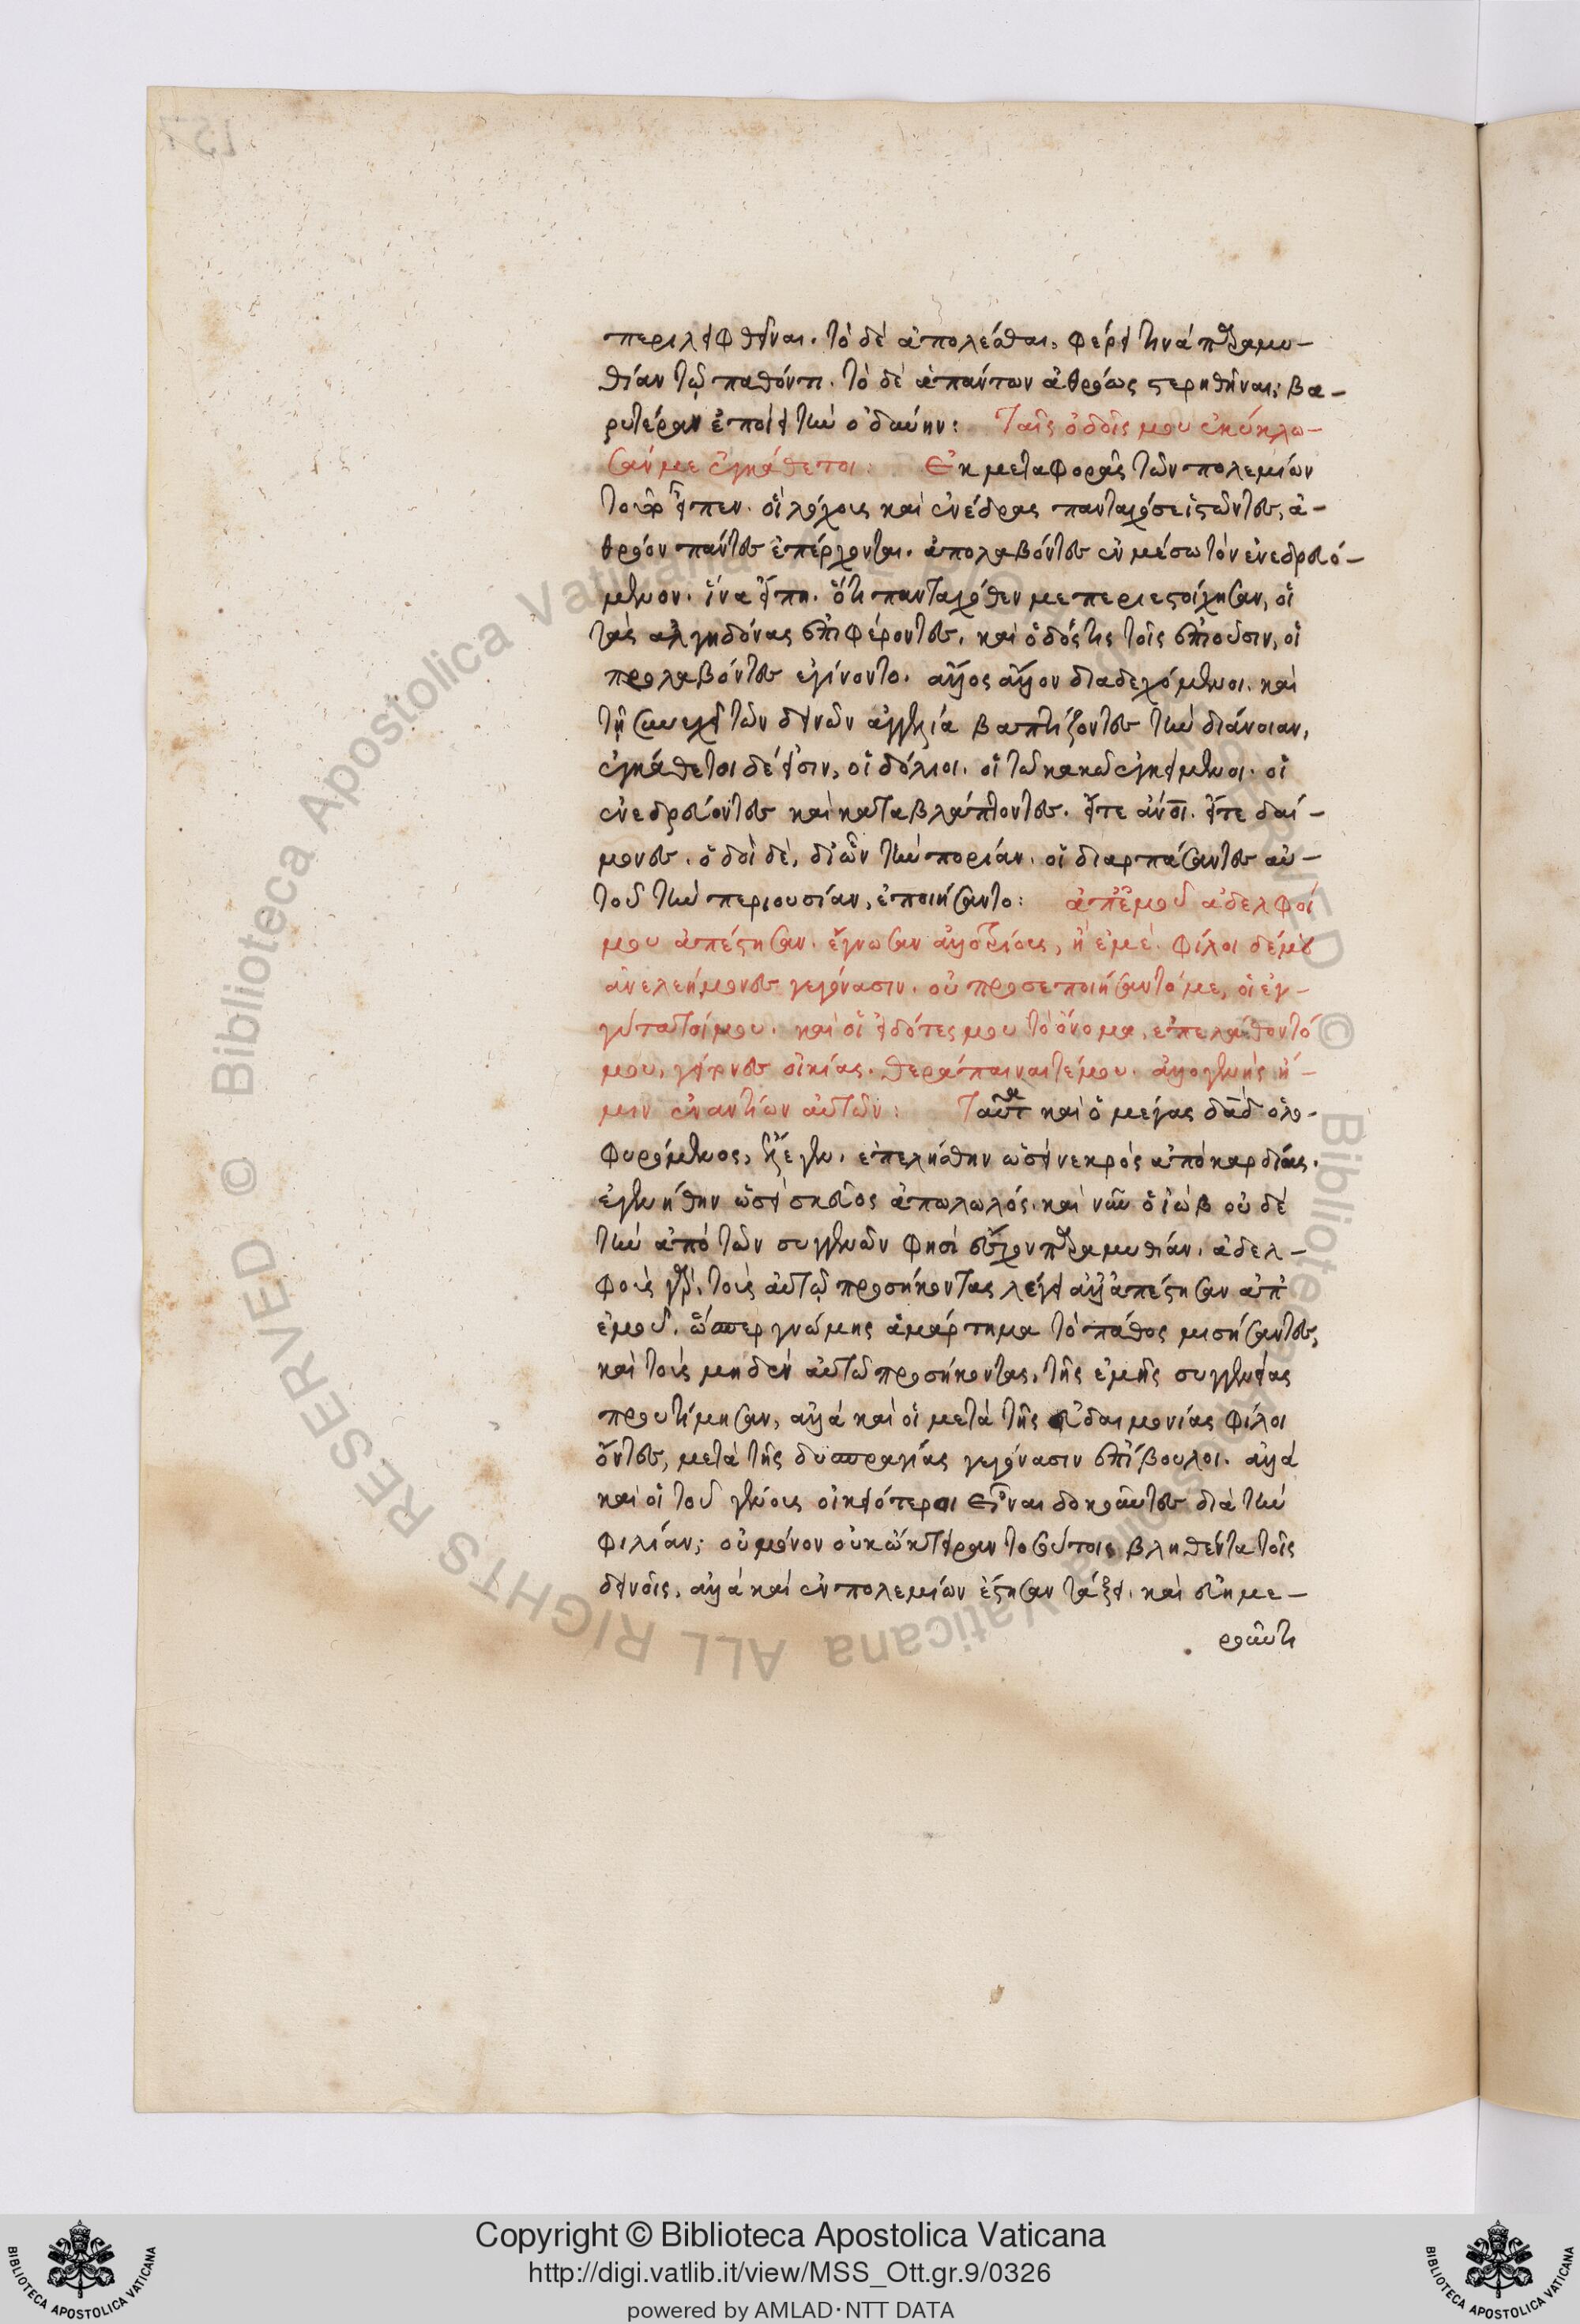 περιλειφθῆναι. τὸ δὲ ἀπολέσθαι, φέρει τινὰ παραμυ-
θίαν τῷ παθόντι. τὸ δὲ ἁπάντων ἀθρόως στερηθῆναι, βα-
ρυτέραν ἐποίει τὴν ὀδύνην: Ταῖς ὁδοῖς μου ἐκύκλω-
σάν με ἐγκάθετοι: Ἐκ μεταφορᾶς τῶν πολεμίων
τοῦτο εἶπεν. οἳ λόχους καὶ ἐνέδρας πανταχόσε ἱστῶντες, ἀ-
θρόον πάντες ἐπέρχονται. ἀπολαβόντες ἐν μέσω τὸν ἐνεδρευό-
μενον. ἵνα εἴπη. ὅτι πανταχόθεν με περιεστοίχησαν, οἱ
τὰς ἀλγηδόνας ἐπιφέροντες. καὶ ὁδός τις τοῖς ἐπιοῦσιν, οἱ
προλαβόντες ἐγίνοντο. ἄλλος ἄλλον διαδεχόμενοι. καὶ
τῇ συνεχεῖ τῶν δεινῶν ἀγγελία βαπτίζοντες τὴν διάνοιαν,
ἐγκάθετοι δέ εἰσιν, οἱ δόλιοι. οἱ τῷ κακῷ ἐγκείμενοι. οἱ
ἐνεδρεύοντες καὶ καταβλάπτοντες. εἴτε ἄνοι. εἴτε δαί-
μονες. ὁδοὶ δὲ, δι ὧν τὴν πορείαν. οἱ διαρπάσαντες αὐ-
τοῦ τὴν περιουσίαν, ἐποιήσαντο: ἀπ ἐμοῦ ἀδελφοί
μου ἀπέστησαν. ἔγνωσαν ἀλλοτρίους, ἢ ἐμέ. φίλοι δέ μου
ἀνελεήμονες γεγόνασιν. οὐ προσεποιήσαντό με, οἱ ἐγ-
γύτατοί μου. καὶ οἱ εἰδότες μου τὸ ὄνομα, ἐπελάθοντό
μου, γείτονες οἰκίας. θεράπαιναί τέ μου. ἀλλογενὴς ἤ-
μην ἐναντίον αὐτῶν: Ταῦτα καὶ ὁ μέγας δαδ ὀλο-
φυρόμενος, ἔλεγεν. ἐπελήσθην ὡσεὶ νεκρὸς ἀπὸ καρδίας.
ἐγενήθην ὡσεὶ σκεῦος ἀπολωλός. καὶ νῦν ὁ ἰὼβ οὐδὲ
τὴν ἀπὸ τῶν συγγενῶν φησὶ εὗρον παραμυθίαν. ἀδελ-
φοὺς γὰρ, τοὺς αὐτῷ προσήκοντας λέγει ἀλλ ἀπέστησαν ἀπ
ἐμοῦ. ὥσπερ γνώμης ἁμάρτημα τὸ πάθος μισήσαντες,
καὶ τοὺς μηδὲν αὐτῷ προσήκοντας, τῆς ἐμῆς συγγενείας
προυτίμησαν, ἀλλὰ καὶ οἱ μετὰ τῆς εὐδαιμονίας φίλοι
ὄντες, μετὰ τῆς δυσπραγίας γεγόνασιν ἐπίβουλοι. ἀλλὰ
καὶ οἱ τοῦ γένους οἰκειότεροι εἶναι δοκοῦντες διὰ τὴν
φιλίαν; οὐ μόνον οὐκ ᾤκτειραν τοσούτοις βληθέντα τοῖς
δεινοῖς. ἀλλὰ καὶ ἐν πολεμίων ἔστησαν τάξει. καὶ εὐημε-
ροῦντι
Copyright © Biblioteca Apostolica Vaticana
http://digi.vatlib.it/view/MSS_Ott.gr.9/0326
powered by AMLAD·NTT DATA